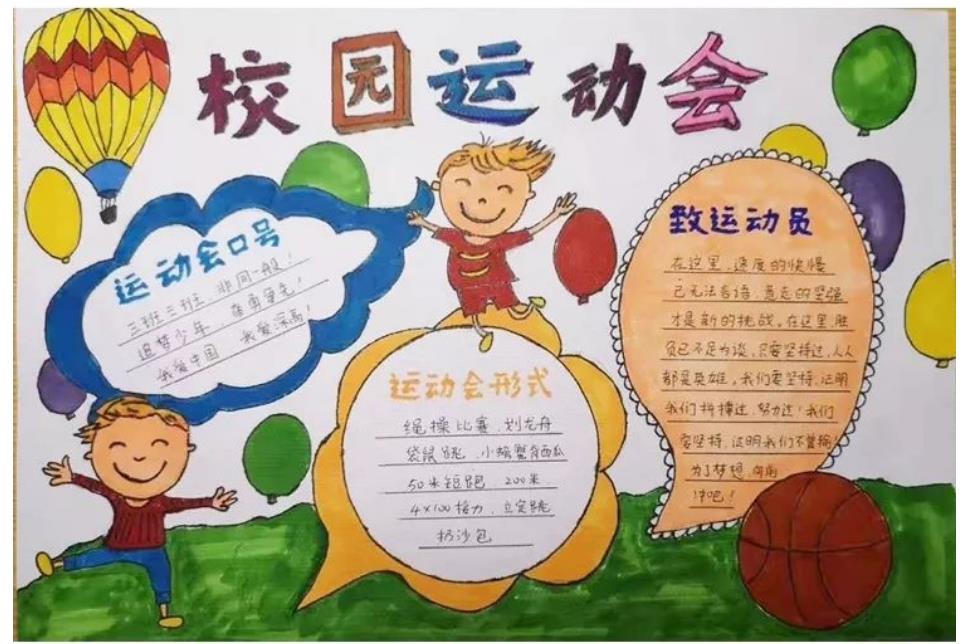 校园运动会
运动会口号
三班三班，非同一般！
追梦少年，奋勇争先！
我爱中国 我爱深高！
运动会形式
绳操比赛、划龙舟
袋鼠跳、小螃蟹背西瓜
50米短跑 200米、
4×100接力、立定跳
扔沙包
致运动员
在这里，速度的快慢
已无法言语，意志的坚强
才是新的挑战。在这里，胜
负已不足为谈，只要坚持过，人人
都是英雄，我们要坚持，证明
我们拼搏过，努力过！我们
要坚持，证明我们不曾输！
为了梦想，向前
冲吧！